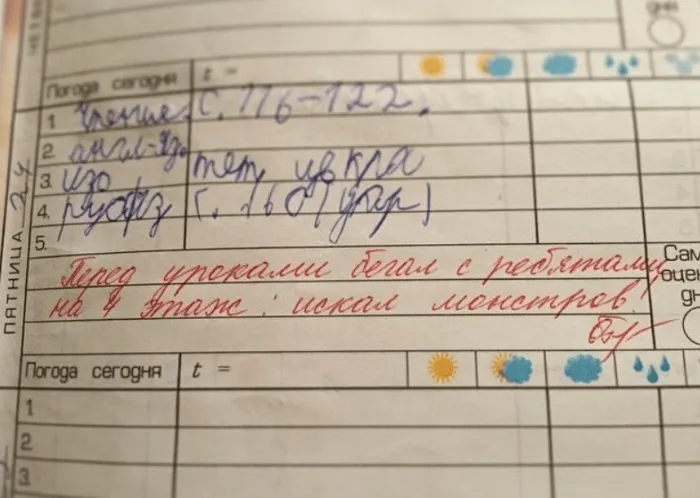 дня
Погода сегодня t =
1 Чтение С. 116-122.
2. англ-яз.
3. изо, тет, цв кра
4.
5.
ПЯТНИЦА 24
Перед уроками бегал с ребятами
на 4 этаж: искал монстров!
Сам
оцен
дн
Погода сегодня t =
1
2
3.